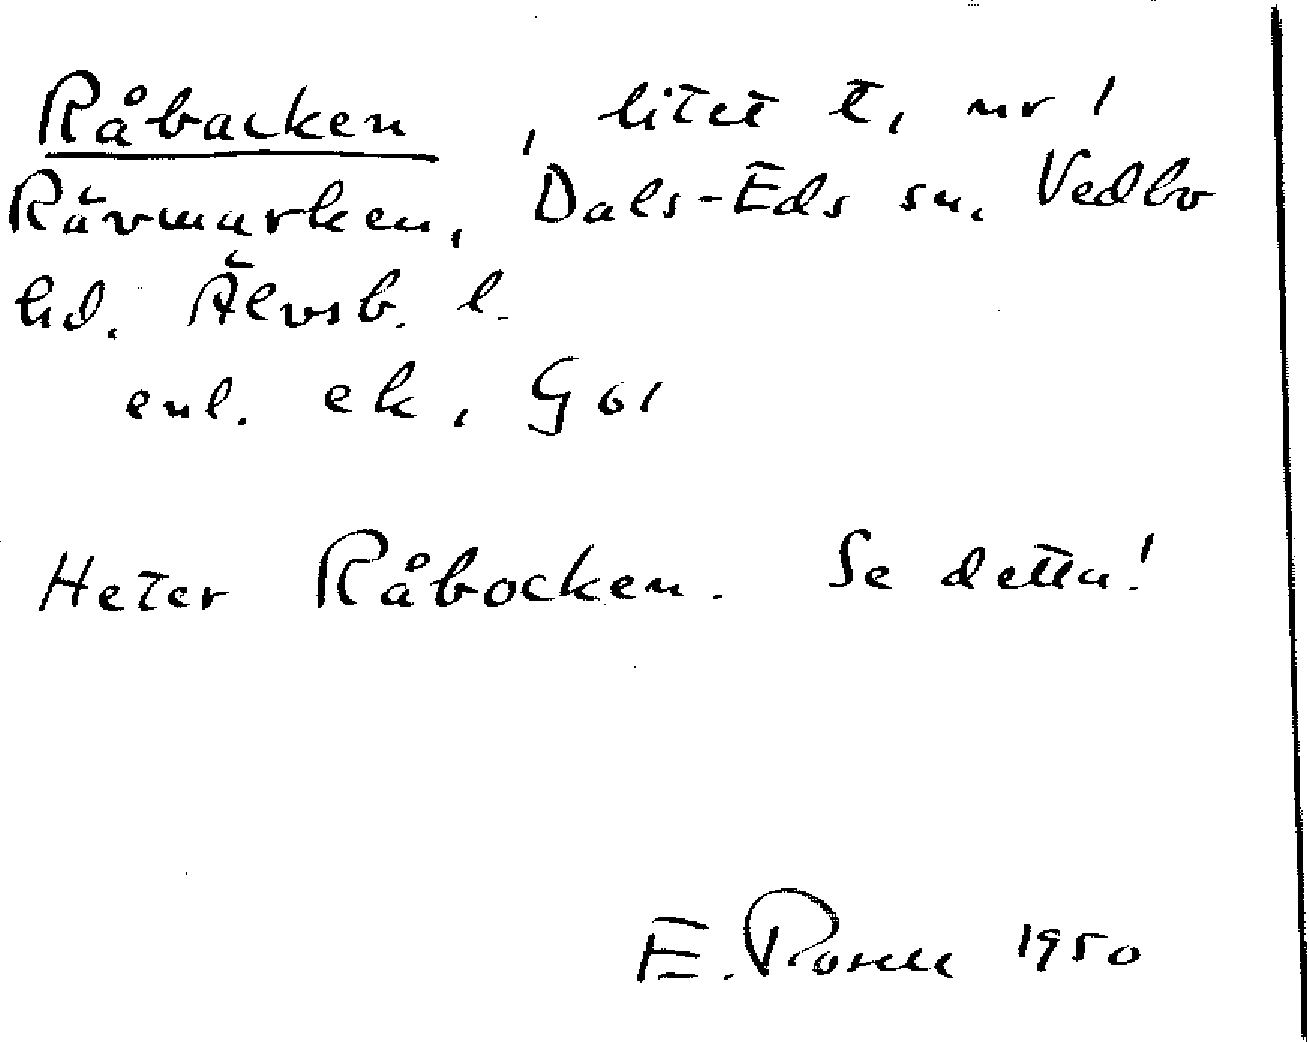 Råbacken, litet t, nr 1
Rävmarken, Dals-Eds sn, Vedbo
hd. Älvsb. l.
enl. ek, G 61
Heter Råbocken. Se detta!
E. Rosell 1950